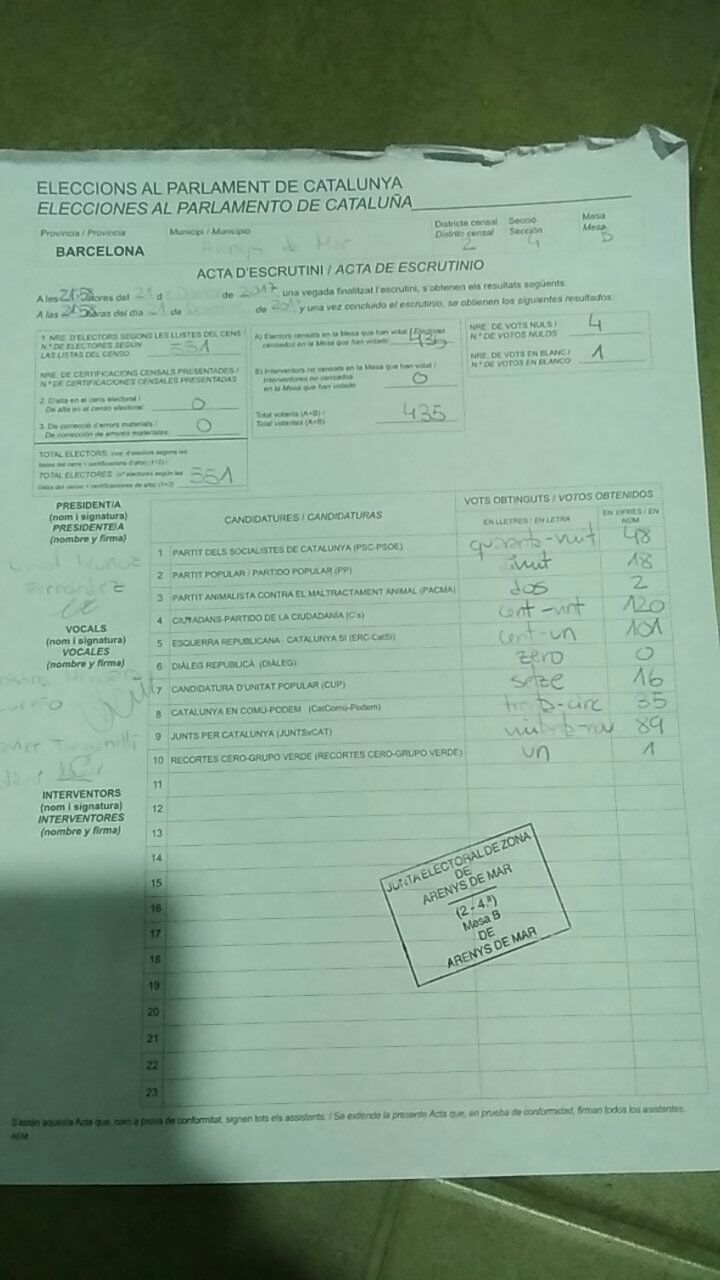 ELECCIONS AL PARLAMENT DE CATALUNYA
ELECCIONES AL PARLAMENTO DE CATALUÑA
Provincia / Provincia Municipi / Municipio Districte censal Secció Mesa
Distrito censal Sección Mesa
BARCELONA Arenys de Mar 2 4 B
ACTA D'ESCRUTINI / ACTA DE ESCRUTINIO
A les 21:58 hores del 21 d de 2017 una vegada finalitzat l'escrutini, s'obtenen els resultats següents:
A las 21:58 horas del día 21 de de 2017, y una vez concluido el escrutinio, se obtienen los siguientes resultados.
1. NRE. D'ELECTORS SEGONS LES LLISTES DEL CENS /
N.º DE ELECTORES SEGÚN
LAS LISTAS DEL CENSO 551
NRE. DE CERTIFICACIONS CENSALS PRESENTADES /
N.º DE CERTIFICACIONES CENSALES PRESENTADAS
2. D'alta en el cens electoral /
De alta en el censo electoral: 0
3. De correcció d'errors materials /
De corrección de errores materiales: 0
TOTAL ELECTORS: (nre. d'electors segons les
llistes del cens + certificacions d'alta) (1+2) /
TOTAL ELECTORES: (nº electores según las
listas del censo + certificaciones de alta) (1+2) 551
A) Electors censats en la Mesa que han votat / Electores
censados en la Mesa que han votado 435
B) Interventors no censats en la Mesa que han votat /
Interventores no censados
en la Mesa que han votado 0
Total votants (A+B) /
Total votantes (A+B) 435
NRE. DE VOTS NULS /
N.º DE VOTOS NULOS 4
NRE. DE VOTS EN BLANC /
N.º DE VOTOS EN BLANCO 1
PRESIDENT/A
(nom i signatura)
PRESIDENTE/A
(nombre y firma)
Fernandez
VOCALS
(nom i signatura)
VOCALES
(nombre y firma)
INTERVENTORS
(nom i signatura)
INTERVENTORES
(nombre y firma)
CANDIDATURES / CANDIDATURAS VOTS OBTINGUTS / VOTOS OBTENIDOS
EN LLETRES / EN LETRA EN XIFRES / EN NÚM.
1 PARTIT DELS SOCIALISTES DE CATALUNYA (PSC-PSOE) quaranta-vuit 48
2 PARTIT POPULAR / PARTIDO POPULAR (PP) 18
3 PARTIT ANIMALISTA CONTRA EL MALTRACTAMENT ANIMAL (PACMA) dos 2
4 CIUTADANS-PARTIDO DE LA CIUDADANÍA (C's) cent-vint 120
5 ESQUERRA REPUBLICANA - CATALUNYA SÍ (ERC-CatSí) cent-un 101
6 DIÀLEG REPUBLICÀ (DIÀLEG) zero 0
7 CANDIDATURA D'UNITAT POPULAR (CUP) setze 16
8 CATALUNYA EN COMÚ-PODEM (CatComú-Podem) 35
9 JUNTS PER CATALUNYA (JUNTSxCAT) 89
10 RECORTES CERO-GRUPO VERDE (RECORTES CERO-GRUPO VERDE) un 1
11
12
13
14
15
16
17
18
19
20
21
22
23
JUNTA ELECTORAL DE ZONA
DE
ARENYS DE MAR
(2 - 4.ª)
Mesa B
DE
ARENYS DE MAR
S'estén aquesta Acta que, com a prova de conformitat, signen tots els assistents. / Se extiende la presente Acta que, en prueba de conformidad, firman todos los asistentes.
AEM